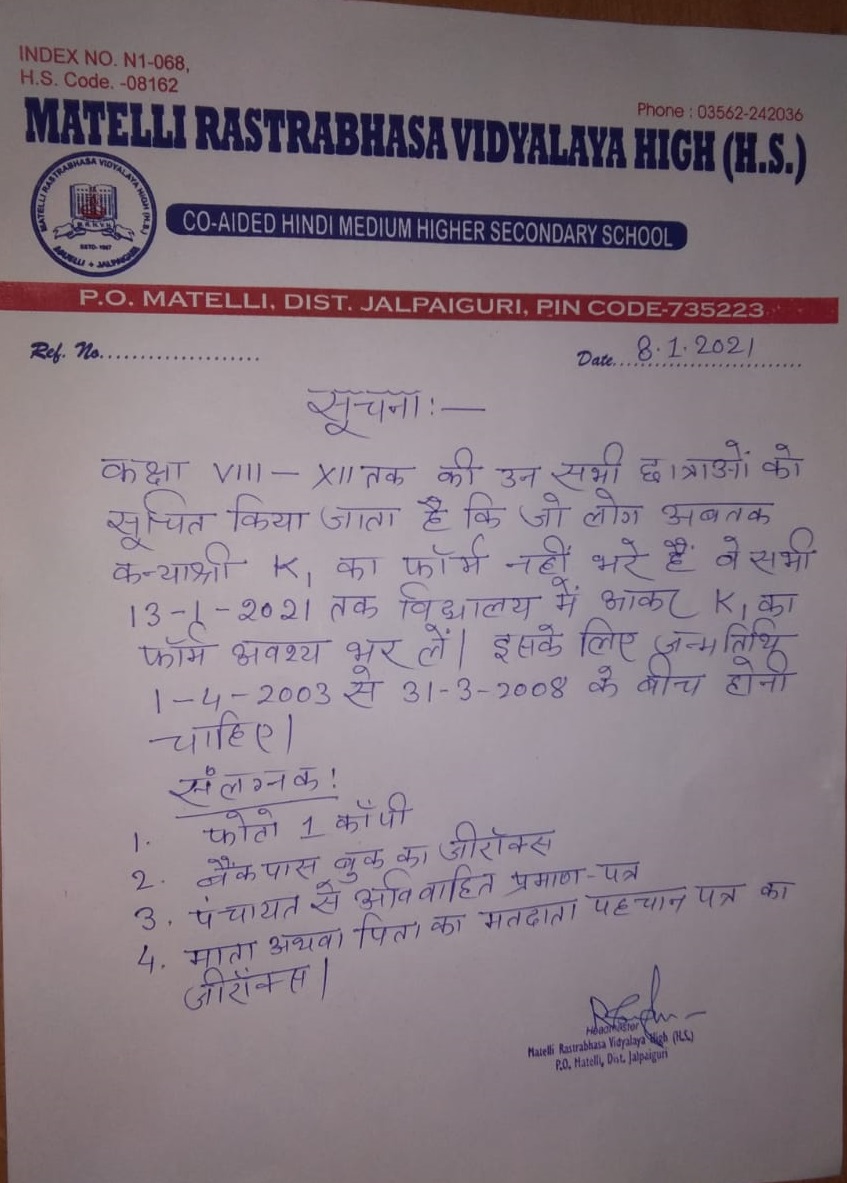 INDEX NO. N1-068,
H.S. Code. -08162
Phone : 03562-242036
MATELLI RASTRABHASA VIDYALAYA HIGH (H.S.)
MATELLI RASTRABHASA VIDYALAYA HIGH (H.S.)
ESTD- 1967
MATELLI + JALPAIGURI
CO-AIDED HINDI MEDIUM HIGHER SECONDARY SCHOOL
P.O. MATELLI, DIST. JALPAIGURI, PIN CODE-735223
Ref. No....................
Date....8.1.2021
सूचना:—
कक्षा VIII – XII तक की उन सभी छात्राओं को
सूचित किया जाता है कि जो लोग अबतक
कन्याश्री K1 का फॉर्म नहीं भरे हैं वे सभी
13-1-2021 तक विद्यालय में आकर K1 का
फॉर्म अवश्य भर लें। इसके लिए जन्मतिथि
1-4-2003 से 31-3-2008 के बीच होनी
चाहिए।
संलग्नक:
1. फोटो 1 कॉपी
2. बैंक पास बुक का जीरॉक्स
3. पंचायत से अविवाहित प्रमाण-पत्र
4. माता अथवा पिता का मतदाता पहचान पत्र का
जीरॉक्स।
Headmaster
Matelli Rastrabhasa Vidyalaya High (H.S.)
P.O. Matelli, Dist. Jalpaiguri